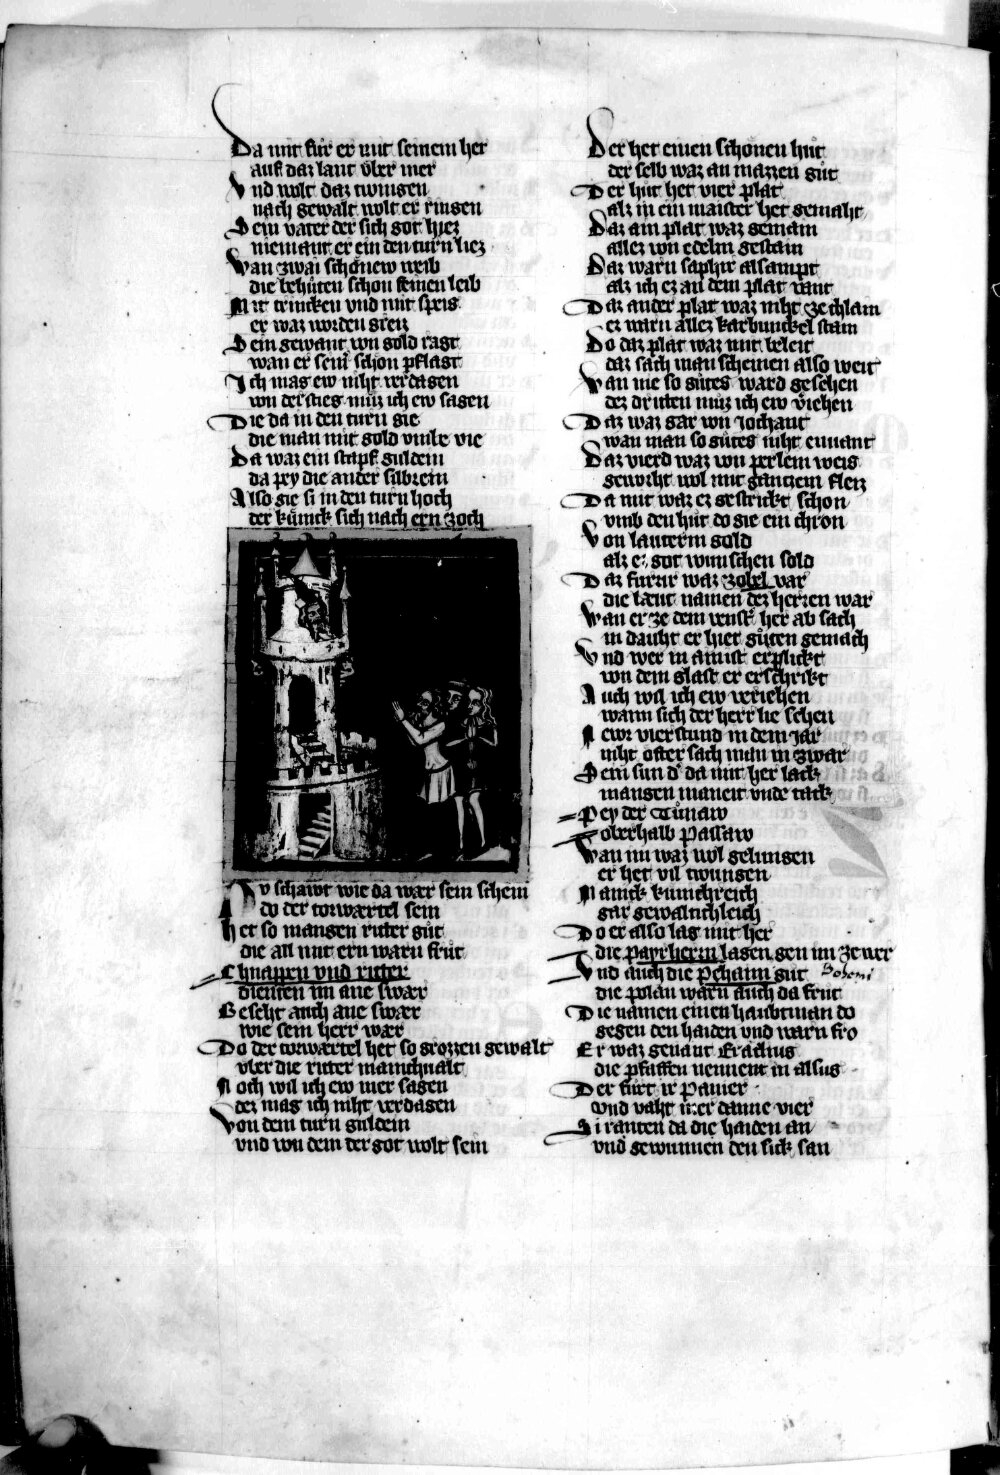 Da mit fůr er mit seinem her
auf daz lant vͤber mer
Vnd wolt daz twingen
nach gewalt wolt er ringen
Sein vater der sich got hiez
niemant er ein den turn liez
Wan zwai schoͤnew weib
die behuͤten schon seinen leib
Mit trincken vnd mit speis
er waz worden greiz
Sein gewant von gold ragt
wan er sein schon pflagt
Ich mag ew niht verdagen
von der stieg muͤz ich ew sagen
Die da in den turn gie
die man mit gold vmbe vie
Da waz ein stapf guldein
da pey die ander silbrein
Also gie si in den turn hoch
der kuͤnick sich nach ern zoch
Nv schawt wie da wær sein schein
do der torwærtel sein
Het so mangen ritter guͦt
die all mit ern warn fruͦt
Chnappen vnd ritter
dienten im ane swær
Beseht auch ane swær
wie sein herr wær
Do der torwærtel het so grozzen gewalt
vber die ritter manichualt
Noch wil ich ew mer sagen
dez mag ich niht verdagen
Von dem turn guldein
vnd von dem der got wolt sein
Der het einen schoͤnen huͦt
der selb waz an mazzen guͦt
Der huͦt het vier plat
alz in ein maister het gemaht
Daz ain plat waz gemain
allez von edelm gestain
Daz warn saphir alsampt
alz ich ez an dem plat vant
Daz ander plat waz niht ze chlain
ez warn allez karbunckel stain
Do daz plat waz mit beleit
daz sach man scheinen also weit
Wan nie so guͦtes ward gesehen
dez dritten muͦz ich ew veriehen
Daz waz gar von Jochant
wan man so guͦtes niht ennant
Daz vierd waz von perlein weis
geworht wol mit gantzem fleiz
Da mit waz ez gestrickt schon
vmb den huͦt do gie ein chron
Von lauterm gold
alz er got wunschen sold
Daz furrir waz zobel var
die læut namen dez herren war
Wan er ze dem venster her ab sach
in dauht er hiet guͦten gemach
Vnd wer in amist erplickt
von dem glast er erschrikt
Auch wil ich ew veriehen
wann sich der herr lie sehen
Newr vierstund in dem Jar
niht ofter sach man in zwar
Sein sun der da mit her lack
mangen maneit vnde tack
Pey der Tuͦnaw
oberhalb Passaw
Wan im waz wol gelungen
er het vil twungen
Manick kunichreich
gar gewaltichleich
Do er also lag mit her
die Payrherrn lagen gen im ze wer
Vnd auch die Pehaim guͦt Bohemi
die polan warn auch da fruͦt
Die namen einen haubtman do
gegen den haiden vnd warn fro
Er waz genant Eraclius
die pfaffen nennent in alsus
Der furt ir Panier
vnd vaht mer danne vier
Si ranten da die haiden an
vnd gewunnen den sick san